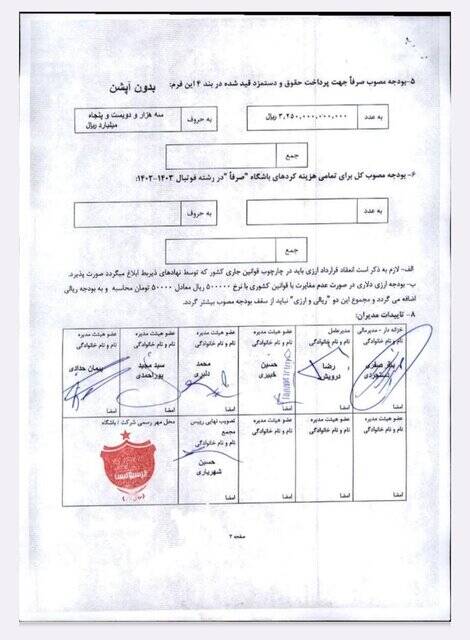 ۵- بودجه مصوب صرفاً جهت پرداخت حقوق و دستمزد قید شده در بند ۴ این فرم: بدون آپشن
به عدد
۳,۲۵۰,۰۰۰,۰۰۰,۰۰۰ ریال
به حروف
سه هزار و دویست و پنجاه میلیارد ریال
جمع
۶- بودجه مصوب کل برای تمامی هزینه کردهای باشگاه "صرفاً "در رشته فوتبال ۱۴۰۳-۱۴۰۲:
به عدد
به حروف
جمع
الف- لازم به ذکر است انعقاد قرارداد ارزی باید در چارچوب قوانین جاری کشور که توسط نهادهای ذیربط ابلاغ میگردد صورت پذیرد.
ب- بودجه ارزی دلاری در صورت عدم مغایرت با قوانین کشوری با نرخ ۵۰۰۰۰۰ ریال معادل ۵۰۰۰۰ تومان محاسبه و به بودجه ریالی
اضافه می گردد و مجموع این دو "ریالی و ارزی" نباید از سقف بودجه مصوب بیشتر گردد.
۸- تاییدات مدیران:
خزانه دار - مدیرمالی
نام و نام خانوادگی
باقر صفری دستجردی
امضا
مدیرعامل
نام و نام خانوادگی
رضا درویش
امضا
عضو هیئت مدیره
نام و نام خانوادگی
حسین خبیری
امضا
عضو هیئت مدیره
نام و نام خانوادگی
محمد دلیری
امضا
عضو هیئت مدیره
نام و نام خانوادگی
سید مجید پوراحمدی
امضا
عضو هیئت مدیره
نام و نام خانوادگی
پیمان حدادی
امضا
عضو هیئت مدیره
نام و نام خانوادگی
امضا
عضو هیئت مدیره
نام و نام خانوادگی
امضا
عضو هیئت مدیره
نام و نام خانوادگی
امضا
تصویب نهایی رییس مجمع
نام و نام خانوادگی
حسین شهریاری
امضا
محل مهر رسمی شرکت / باشگاه
پرسپولیس
صفحه ۲